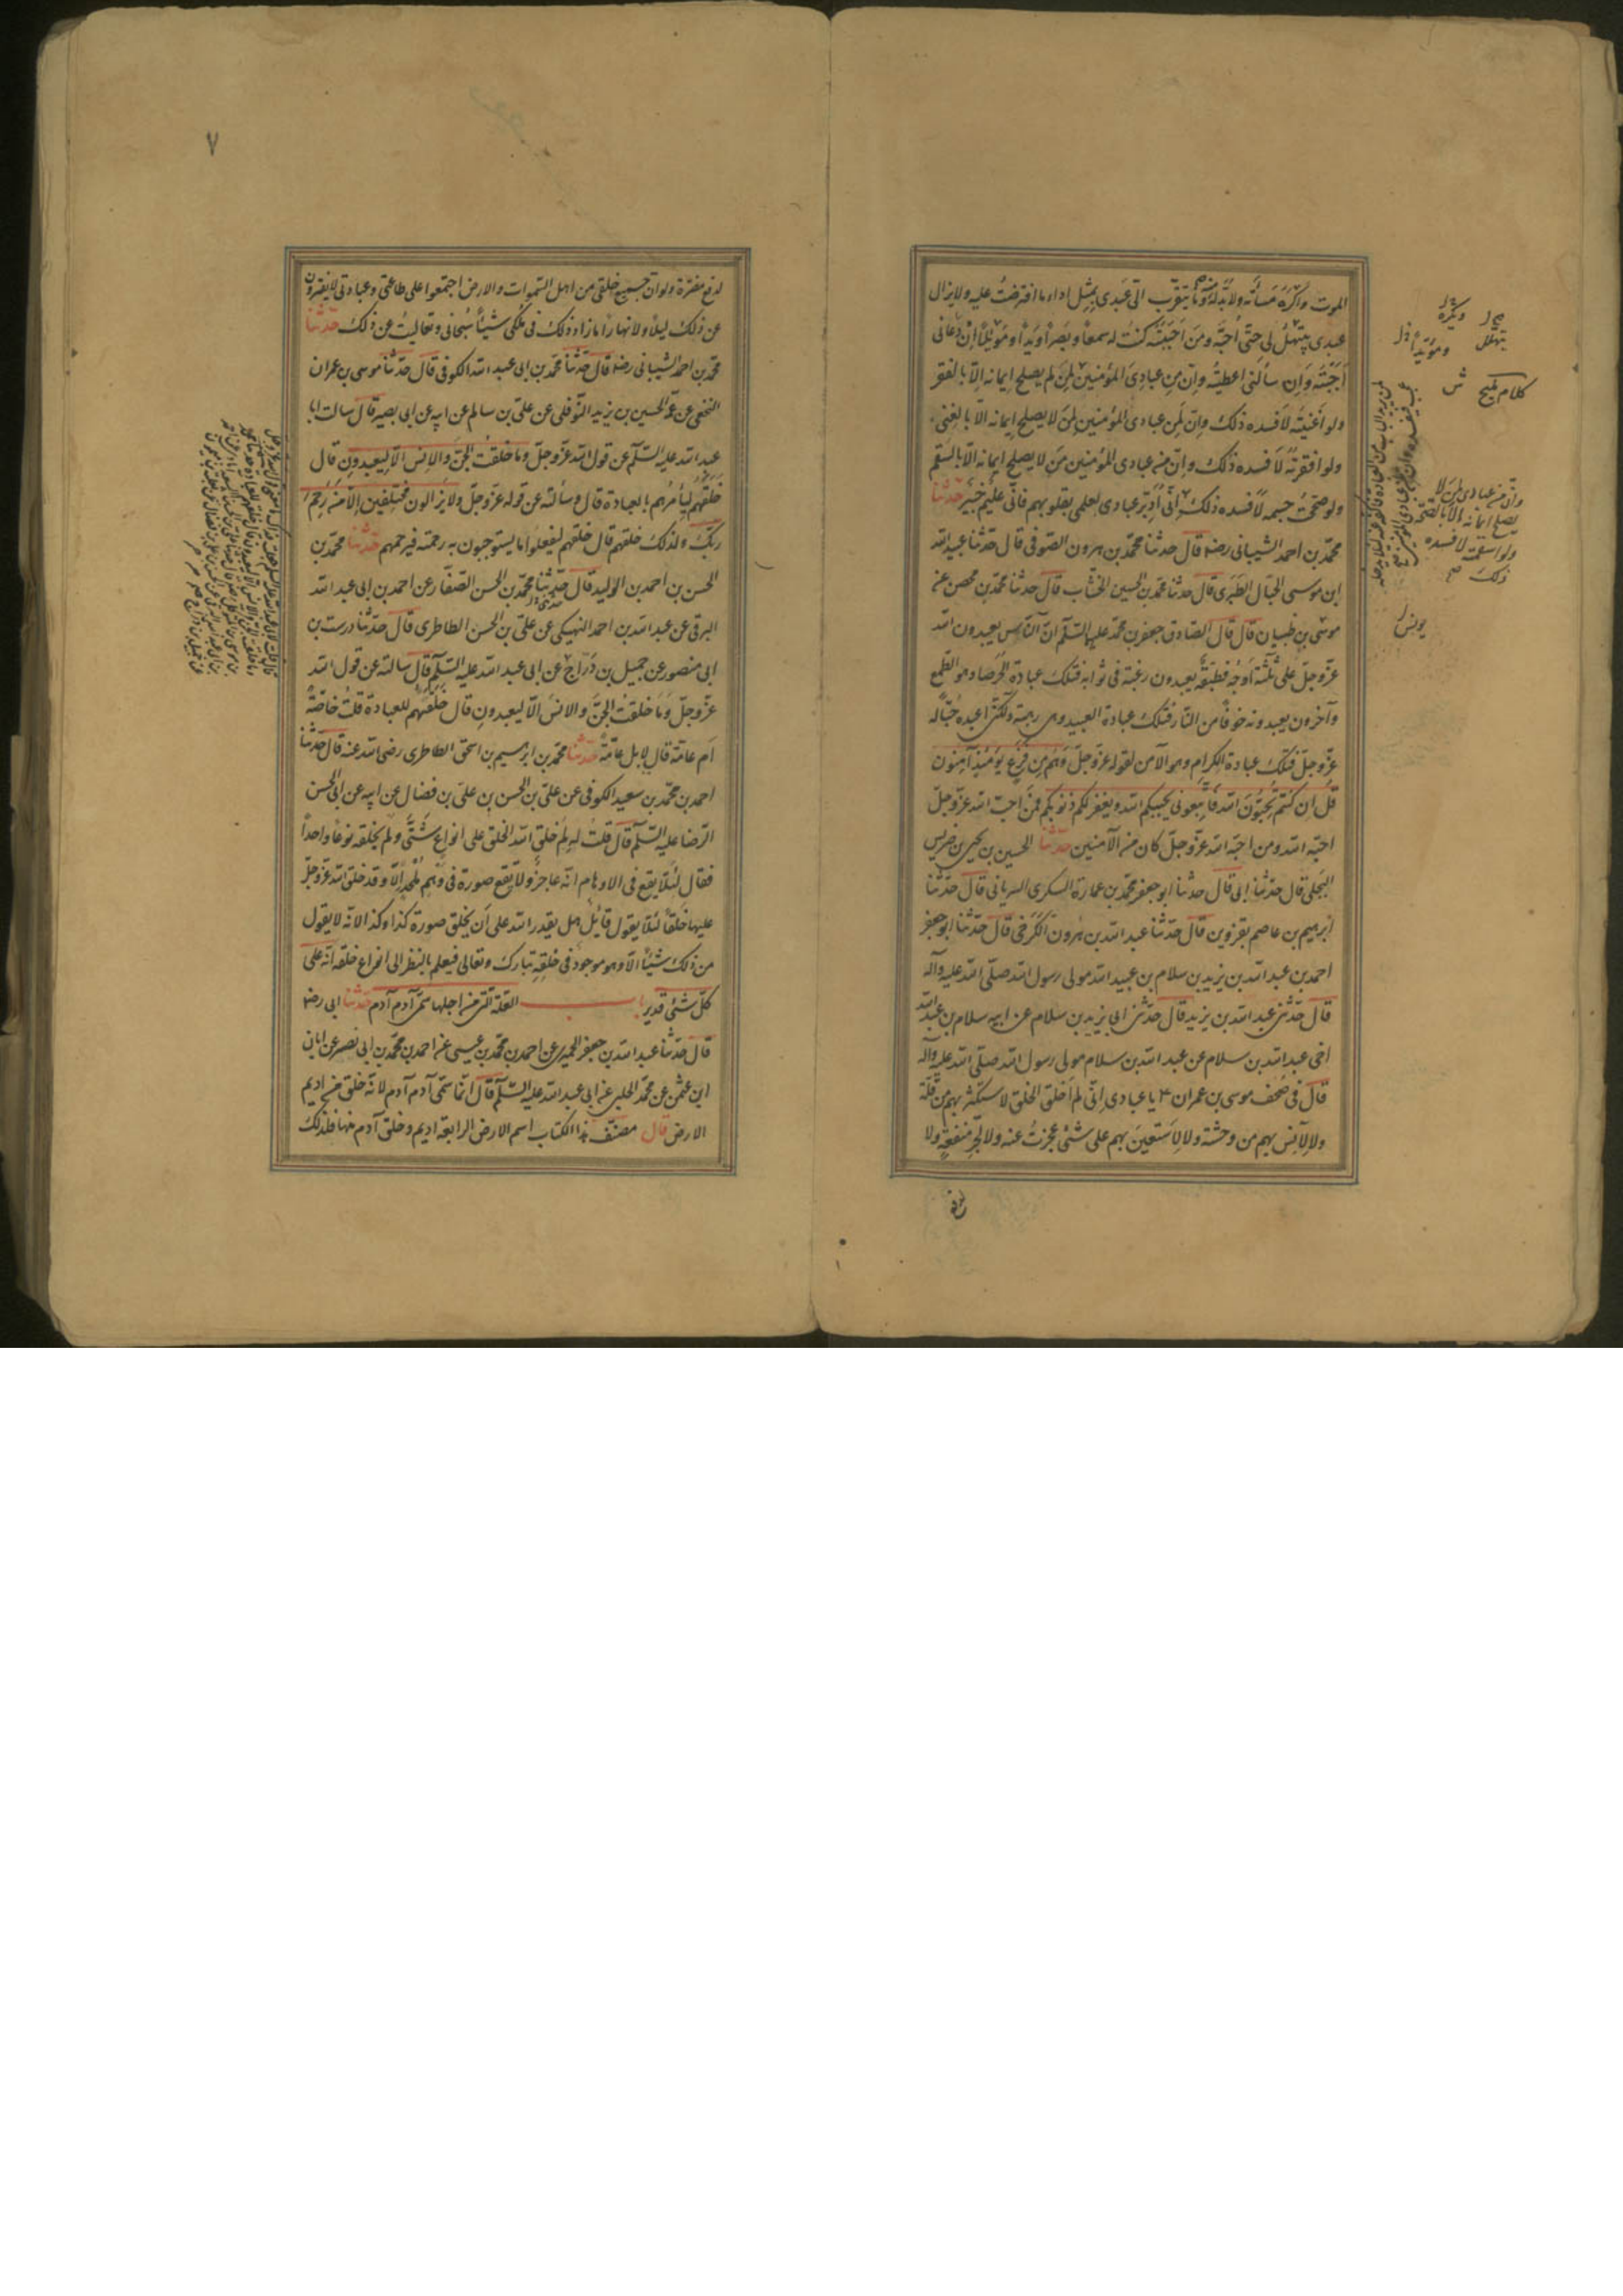 الموت واكره مساءته ولا بد له منه وما يتقرب الىّ عبدى بمثل اداء ما افترضت عليه ولا يزال
عبدى يبتهل لى حتى اُحبّه ومن احببته كنت له سمعاً وبصراً ويداً وموئلاً ان دعانى
اَجَبْتُه وَاِن سألنى اعطيته وانّ من عبادى المؤمنين لمن لم يصلح ايمانه الّا بالفقر
ولو اغنيته لاَفسده ذلك وانّ من عبادى المؤمنين لمن لا يصلح ايمانه الّا بالغنى
ولو افقرته لاَفسده ذلك وانّ من عبادى المؤمنين لمن لا يصلح ايمانه الّا بالسقم
ولو صححت جسمه لاَفسده ذلك انّى اُدبّر عبادى بعلمى بقلوبهم فانّى عليم خبير حدّثنا
محمّد بن احمد الشيبانى رضه قال حدثنا محمّد بن هرون الصّوفى قال حدّثنا عبيد الله
ابن موسى الحبّال الطّبرى قال حدثنا محمّد بن الحسين الخشّاب قال حدثنا محمّد بن محصن عن
يونس بن ظبيان قال قال الصّادق جعفر بن محمّد عليهما السّلم انّ النّاس يعبدون الله
عزّ وجلّ على ثلثة اَوجُه فطبقة يعبدون رغبة فى ثوابه فتلك عبادة الحُرَصاء وهو الطّمع
وآخرون يعبدونه خوفاً من النّار فتلك عبادة العبيد وهى رهبة ولكنّى اعبده حُبّا له
عزّ وجلّ فتلك عبادة الكرام وهو الآمن لقوله عزّ وجلّ وَهُم مِن فَزَعٍ يَومَئِذٍ آمِنُون
قُل ان كنتم تُحِبّونَ الله فاتّبعونى يحببكم الله ويغفر لكم ذنوبكم فمن احبّ الله عزّ وجلّ
احبّه الله ومن احبّه الله عزّ وجلّ كان من الآمنين حدّثنا الحسين بن يحيى بن ضريس
البجلى قال حدّثنا ابى قال حدثنا ابو جعفر محمّد بن عمارة السكرى السريانى قال حدّثنا
ابرهيم بن عاصم بقزوين قال حدّثنا عبد الله بن هرون الكَرَخى قال حدّثنا ابو جعفر
احمد بن عبد الله بن يزيد بن سلام بن عبيد الله مولى رسول الله صلّى الله عليه وآله
قال حدّثنى عبد الله بن يزيد قال حدّثنى ابى يزيد بن سلام عن ابيه سلام بن عبيد الله
اخى عبد الله بن سلام عن عبد الله بن سلام مولى رسول الله صلّى الله عليه وآله
قال فى صحف موسى بن عمران ع يا عبادى انّى لم اَخلق الخلق لاستكثر بهم من قلّة
ولا لآنس بهم من وحشة ولا لاَستعين بهم على شئ عجزت عنه ولا لجرّ منفعةٍ ولا
لدفع
ويكره
يتهلل
ومؤيّداً
كلام مليح
وانّ من عبادى لمن لا
يصلح ايمانه الّا بالصّحة
ولو اسقمته لافسده
ذلك صح
يونس
٧
لدفع مضرّة ولو انّ جميع خلقى من اهل السّموات والارض اجتمعوا على طاعتى وعبادتى لا يفترون
عن ذلك ليلاً ولا نهاراً ما زاد ذلك فى ملكى شيئاً سُبحانى وتعاليت عن ذلك حدّثنا
محمّد بن احمد الشيبانى رضه قال حدّثنا محمّد بن ابى عبد الله الكوفى قال حدّثنا موسى بن عمران
النخعى عن عمّه الحسين بن يزيد النّوفلى عن علىّ بن سالم عن ابيه عن ابى بصير قال سالت ابا
عبد الله عليه السّلم عن قول الله عزّ وجلّ وما خلقتُ الجنّ والانس الّا ليعبدون قال
خلقهم ليأمرهم بالعبادة قال وسألته عن قوله عزّ وجلّ ولا يزالون مختلفين الّا من رحم
ربّك ولذلك خلقهم قال خلقهم ليفعلوا ما يستوجبون به رحمته فيرحمهم حدّثنا محمّد بن
الحسن بن احمد بن الوليد قال حدّثنا محمّد بن الحسن الصّفّار عن احمد بن ابى عبد الله
البرقى عن عبد الله بن احمد النهيكى عن علىّ بن الحسن الطاطرى قال حدّثنا درست بن
ابى منصور عن جميل بن دَرّاج عن ابى عبد الله عليه السّلم قال سالته عن قول الله
عزّ وجلّ وَمَا خلقتُ الجنّ والانسَ الّا ليعبدون قال خلقهم للعبادة قلت خاصّة
اَم عامّة قال لا بل عامّة حدّثنا محمّد بن ابرهيم بن اسحق الطاطرى رضى الله عنه قال حدّثنا
احمد بن محمّد بن سعيد الكوفى عن علىّ بن الحسن بن علىّ بن فضال عن ابيه عن ابى الحسن
الرّضا عليه السّلم قال قلت له لِمَ خلق الله الخلق على انواعٍ شَتّى ولم يخلقه نوعاً واحداً
فقال لئلّا يقع فى الاوهام انّه عاجز ولا يقع صورة فى وَهم مُلحدٍ اِلّا وقد خلق الله عزّ وجلّ
عليها خلقاً لئلّا يقول قائل هل يقدر الله على اَن يخلق صورة كذا وكذا لانّه لا يقول
من ذلك شيئاً الّا وهو موجود فى خلقه تبارك وتعالى فيعلم بالنظر الى انواع خلقه انّه على
كلّ شئ قدير باب العلّة الّتى من اجلها سُمّى آدم آدم حدّثنا ابى رضه
قال حدّثنا عبد الله بن جعفر الحميرى عن احمد بن محمّد بن عيسى عن احمد بن محمّد بن ابى نصر عن ابان
ابن عثمن عن محمّد الحلبى عن ابى عبد الله عليه السّلم قال انّما سُمّى آدم آدم لانّه خلق من اديم
الارض قال مصنّف هذا الكتاب اسم الارض الرابعة اديم وخلق آدم منها فلذلك